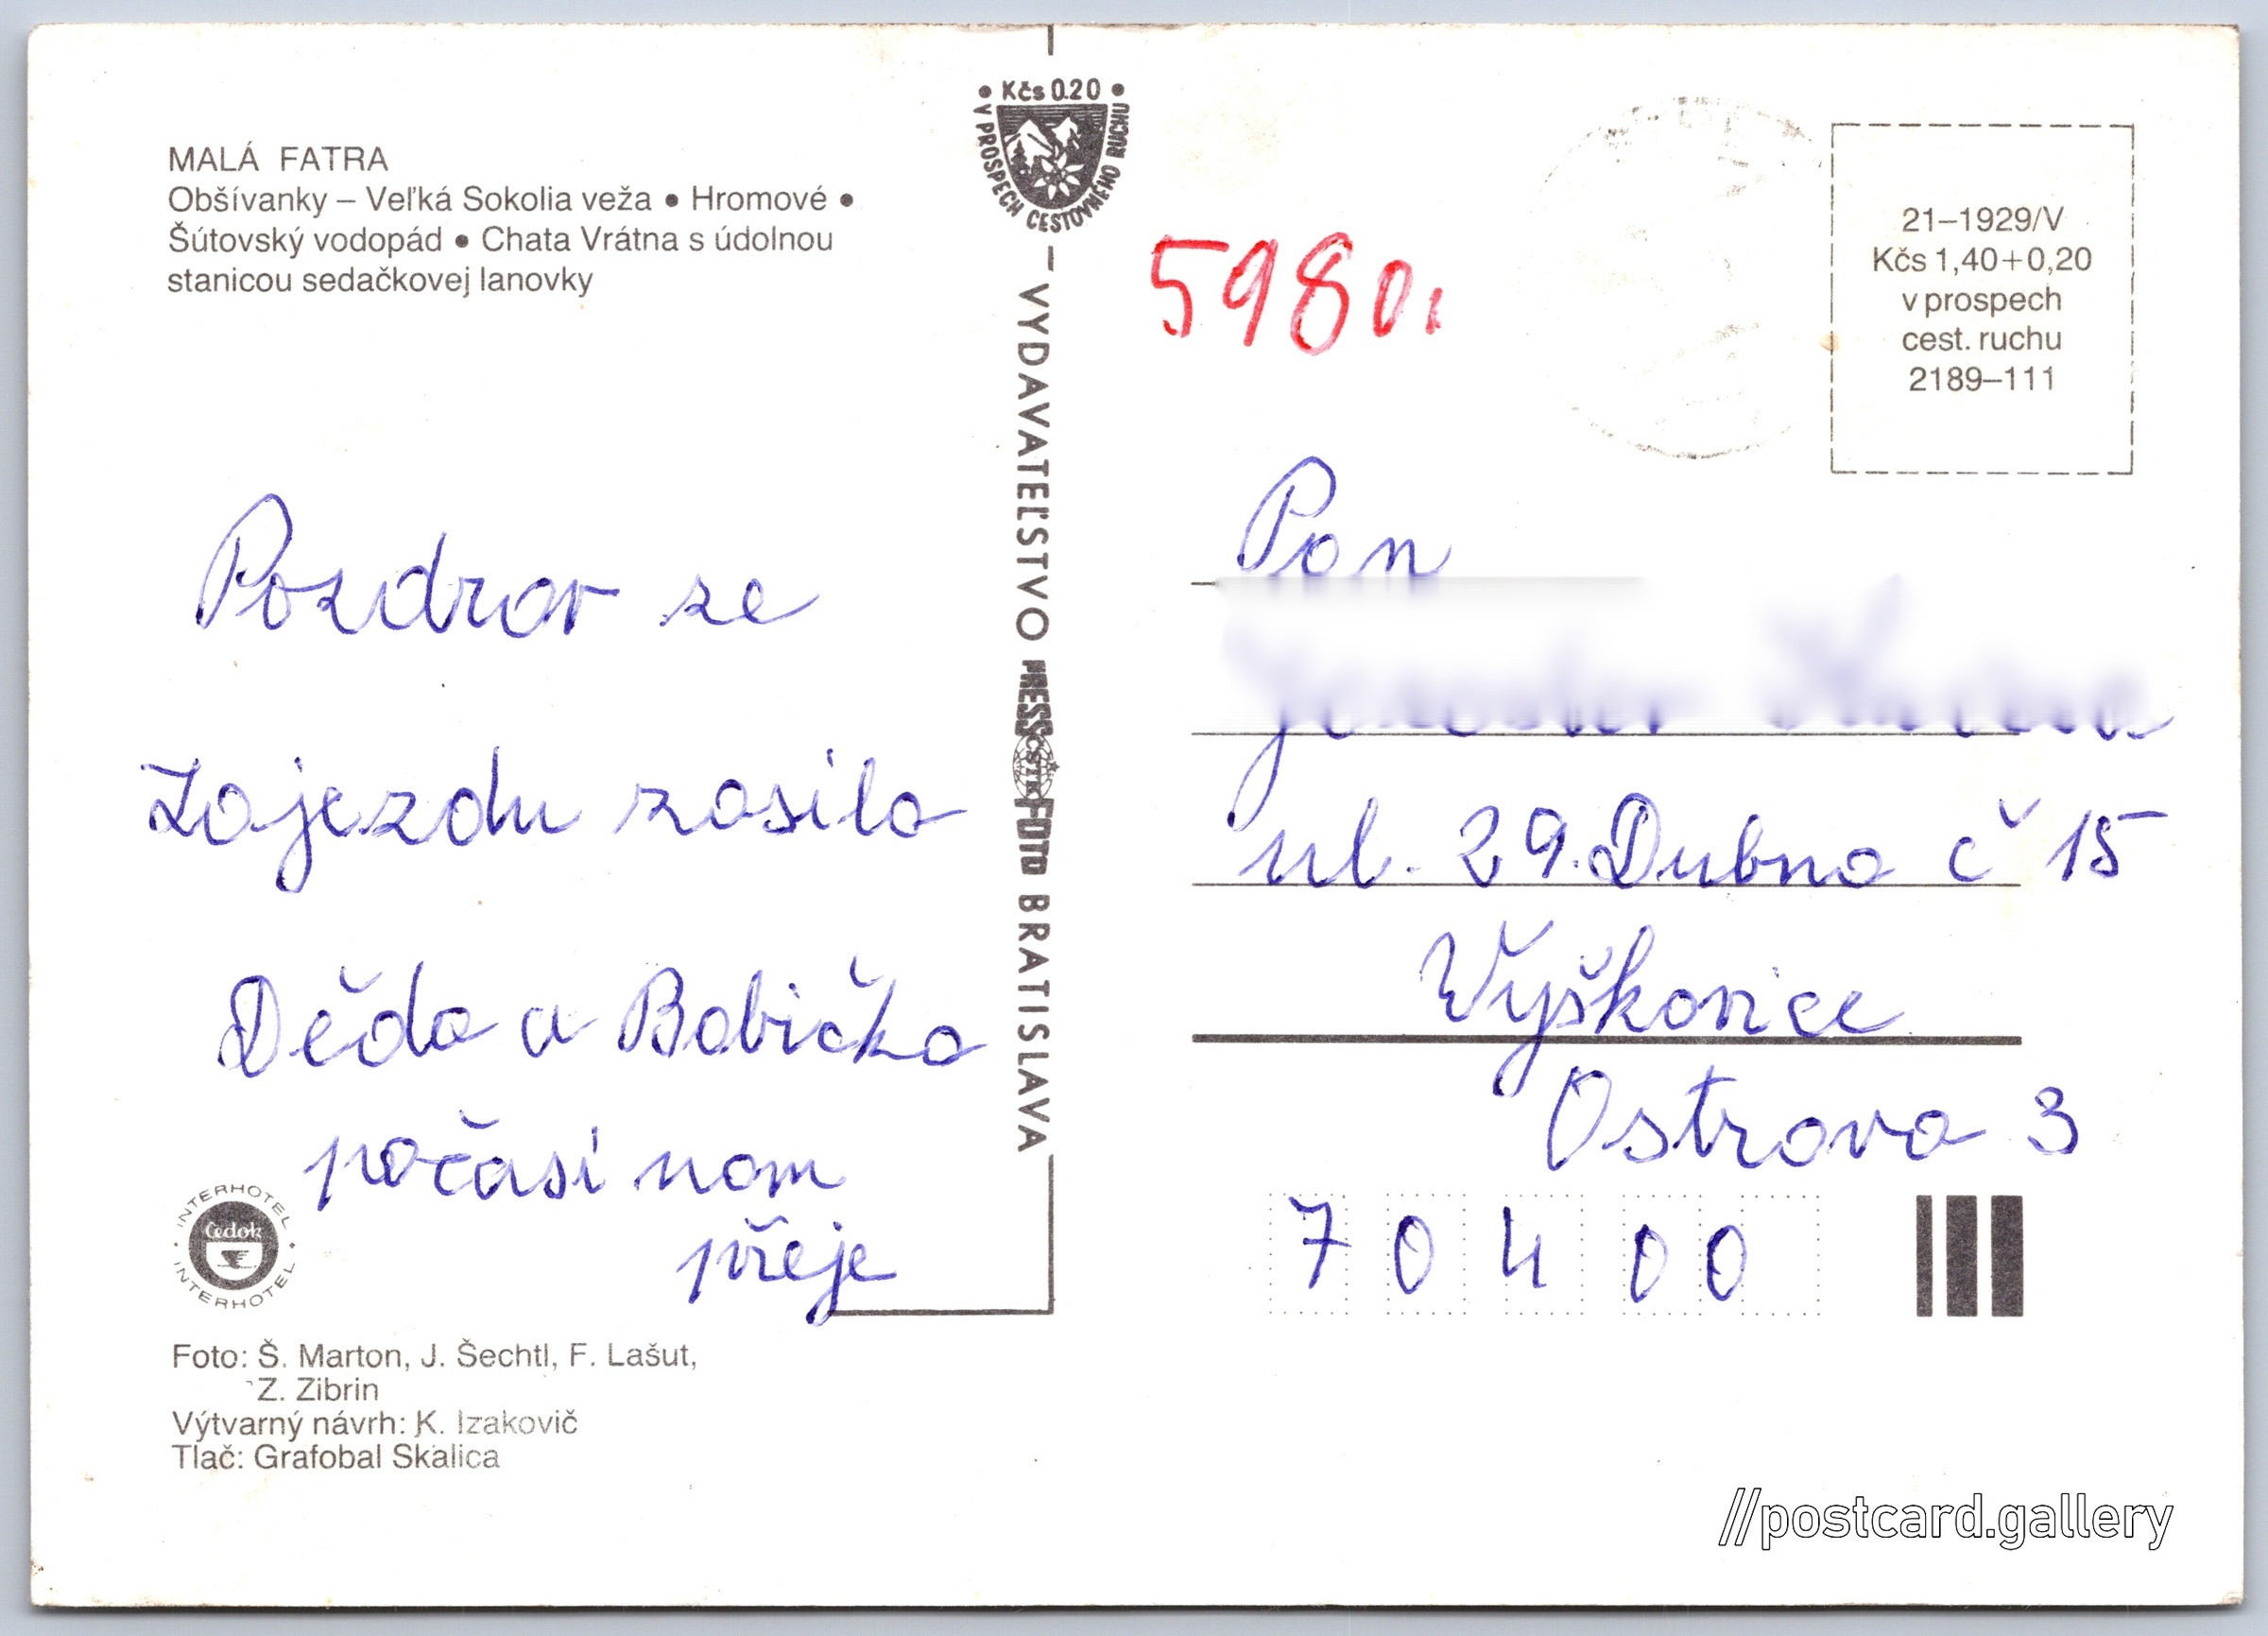 MALÁ FATRA
Obšívanky – Veľká Sokolia veža • Hromové •
Šútovský vodopád • Chata Vrátna s údolnou
stanicou sedačkovej lanovky
Pozdrav ze
Zajezdu zasila
Děda a Babička
počasi nam
přeje
INTERHOTEL
Čedok
INTERHOTEL
Foto: Š. Marton, J. Šechtl, F. Lašut,
Z. Zibrin
Výtvarný návrh: K. Izakovič
Tlač: Grafobal Skalica
• Kčs 0.20 •
V PROSPECH CESTOVNÉHO RUCHU
VYDAVATEĽSTVO PRESSFOTO BRATISLAVA
ČSTK
5980
21–1929/V
Kčs 1,40+0,20
v prospech
cest. ruchu
2189–111
Pan
ul. 29. Dubna č 15
Vyškovice
Ostrava 3
70400
//postcard.gallery